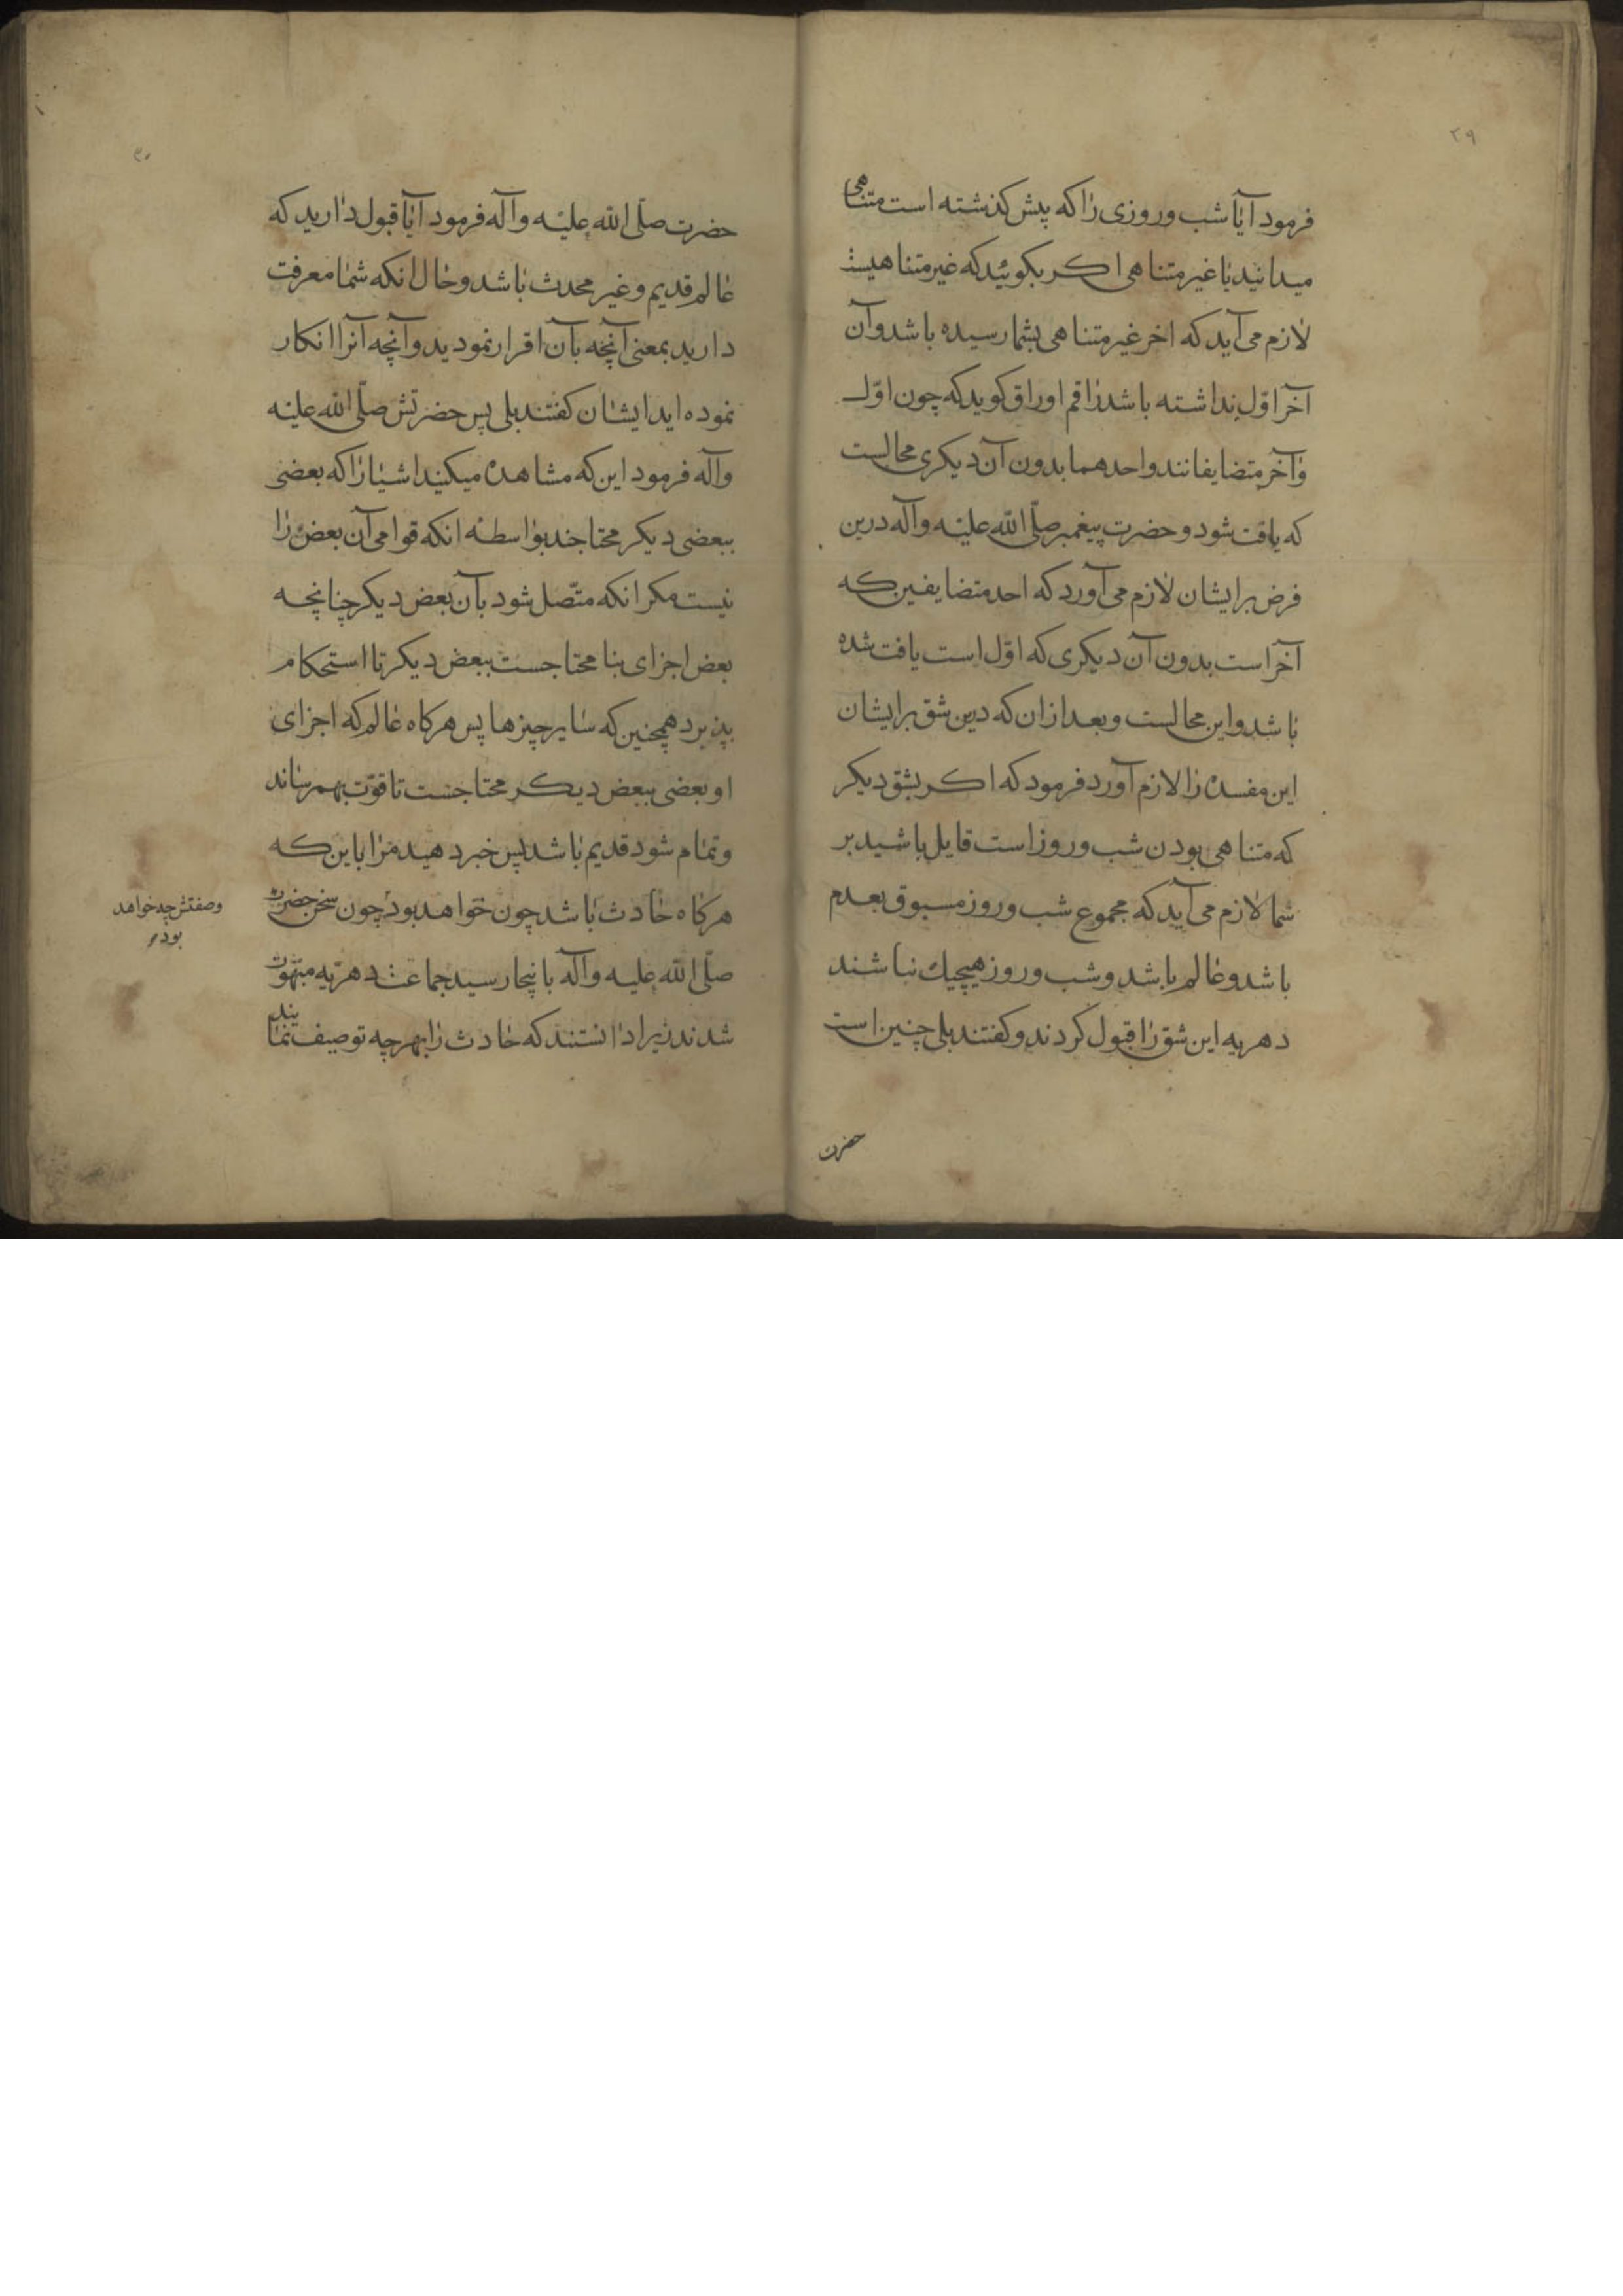 ۲۹
فرمود آیا شب و روزی را که پیش کذشته است متناهی
میدانید یا غیر متناهی اکر بکوئید که غیر متناهیست
لازم می آید که اخر غیر متناهی بشما رسیده باشد و آن
آخر اوّل نداشته باشد راقم اوراق کوید که چون اوّل
و آخر متضایفانند و احدهما بدون آن دیکری محالست
که یافت شود و حضرت پیغمبر صلّی الله علیه وآله درین
فرض بر ایشان لازم می آورد که احد متضایفین که
آخر است بدون آن دیکری که اوّل است یافت شده
باشد و این محالست و بعد ازان که درین شق بر ایشان
این مفسده را لازم آورد فرمود که اکر بشق دیکر
که متناهی بودن شب و روز است قایل باشید بر
شما لازم می آید که مجموع شب و روز مسبوق بعدم
باشد و عالم باشد و شب و روز هیچیك نباشند
دهریه این شق را قبول کردند و کفتند بلی چنین است
حضرت
۳۰
حضرت صلّی الله علیه وآله فرمود آیا قبول دارید که
عالم قدیم و غیر محدث باشد و حال انکه شما معرفت
دارید بمعنی آنچه بآن اقرار نمودید و آنچه آنرا انکار
نموده اید ایشان کفتند بلی پس حضرتش صلّی الله علیه
وآله فرمود این که مشاهده میکنید اشیا را که بعضی
ببعضی دیکر محتاجند بواسطه انکه قوامی آن بعض را
نیست مکر انکه متّصل شود بآن بعض دیکر چنانچه
بعض اجزای بنا محتاجست ببعض دیکر تا استحکام
پذیرد همچنین که سایر چیزها پس هرکاه عالم که اجزای
او بعضی ببعض دیکر محتاجست تا قوّت بهم رساند
و تمام شود قدیم باشد پس خبر دهید مرا باین که
هرکاه حادث باشد چون خواهد بود چون سخن حضرت
وصفتش چه خواهد
بود
صلّی الله علیه وآله بانیجا رسید جماعت دهریّه مبهوت
شدند زیرا دانستند که حادث را بهرچه توصیف نمایند